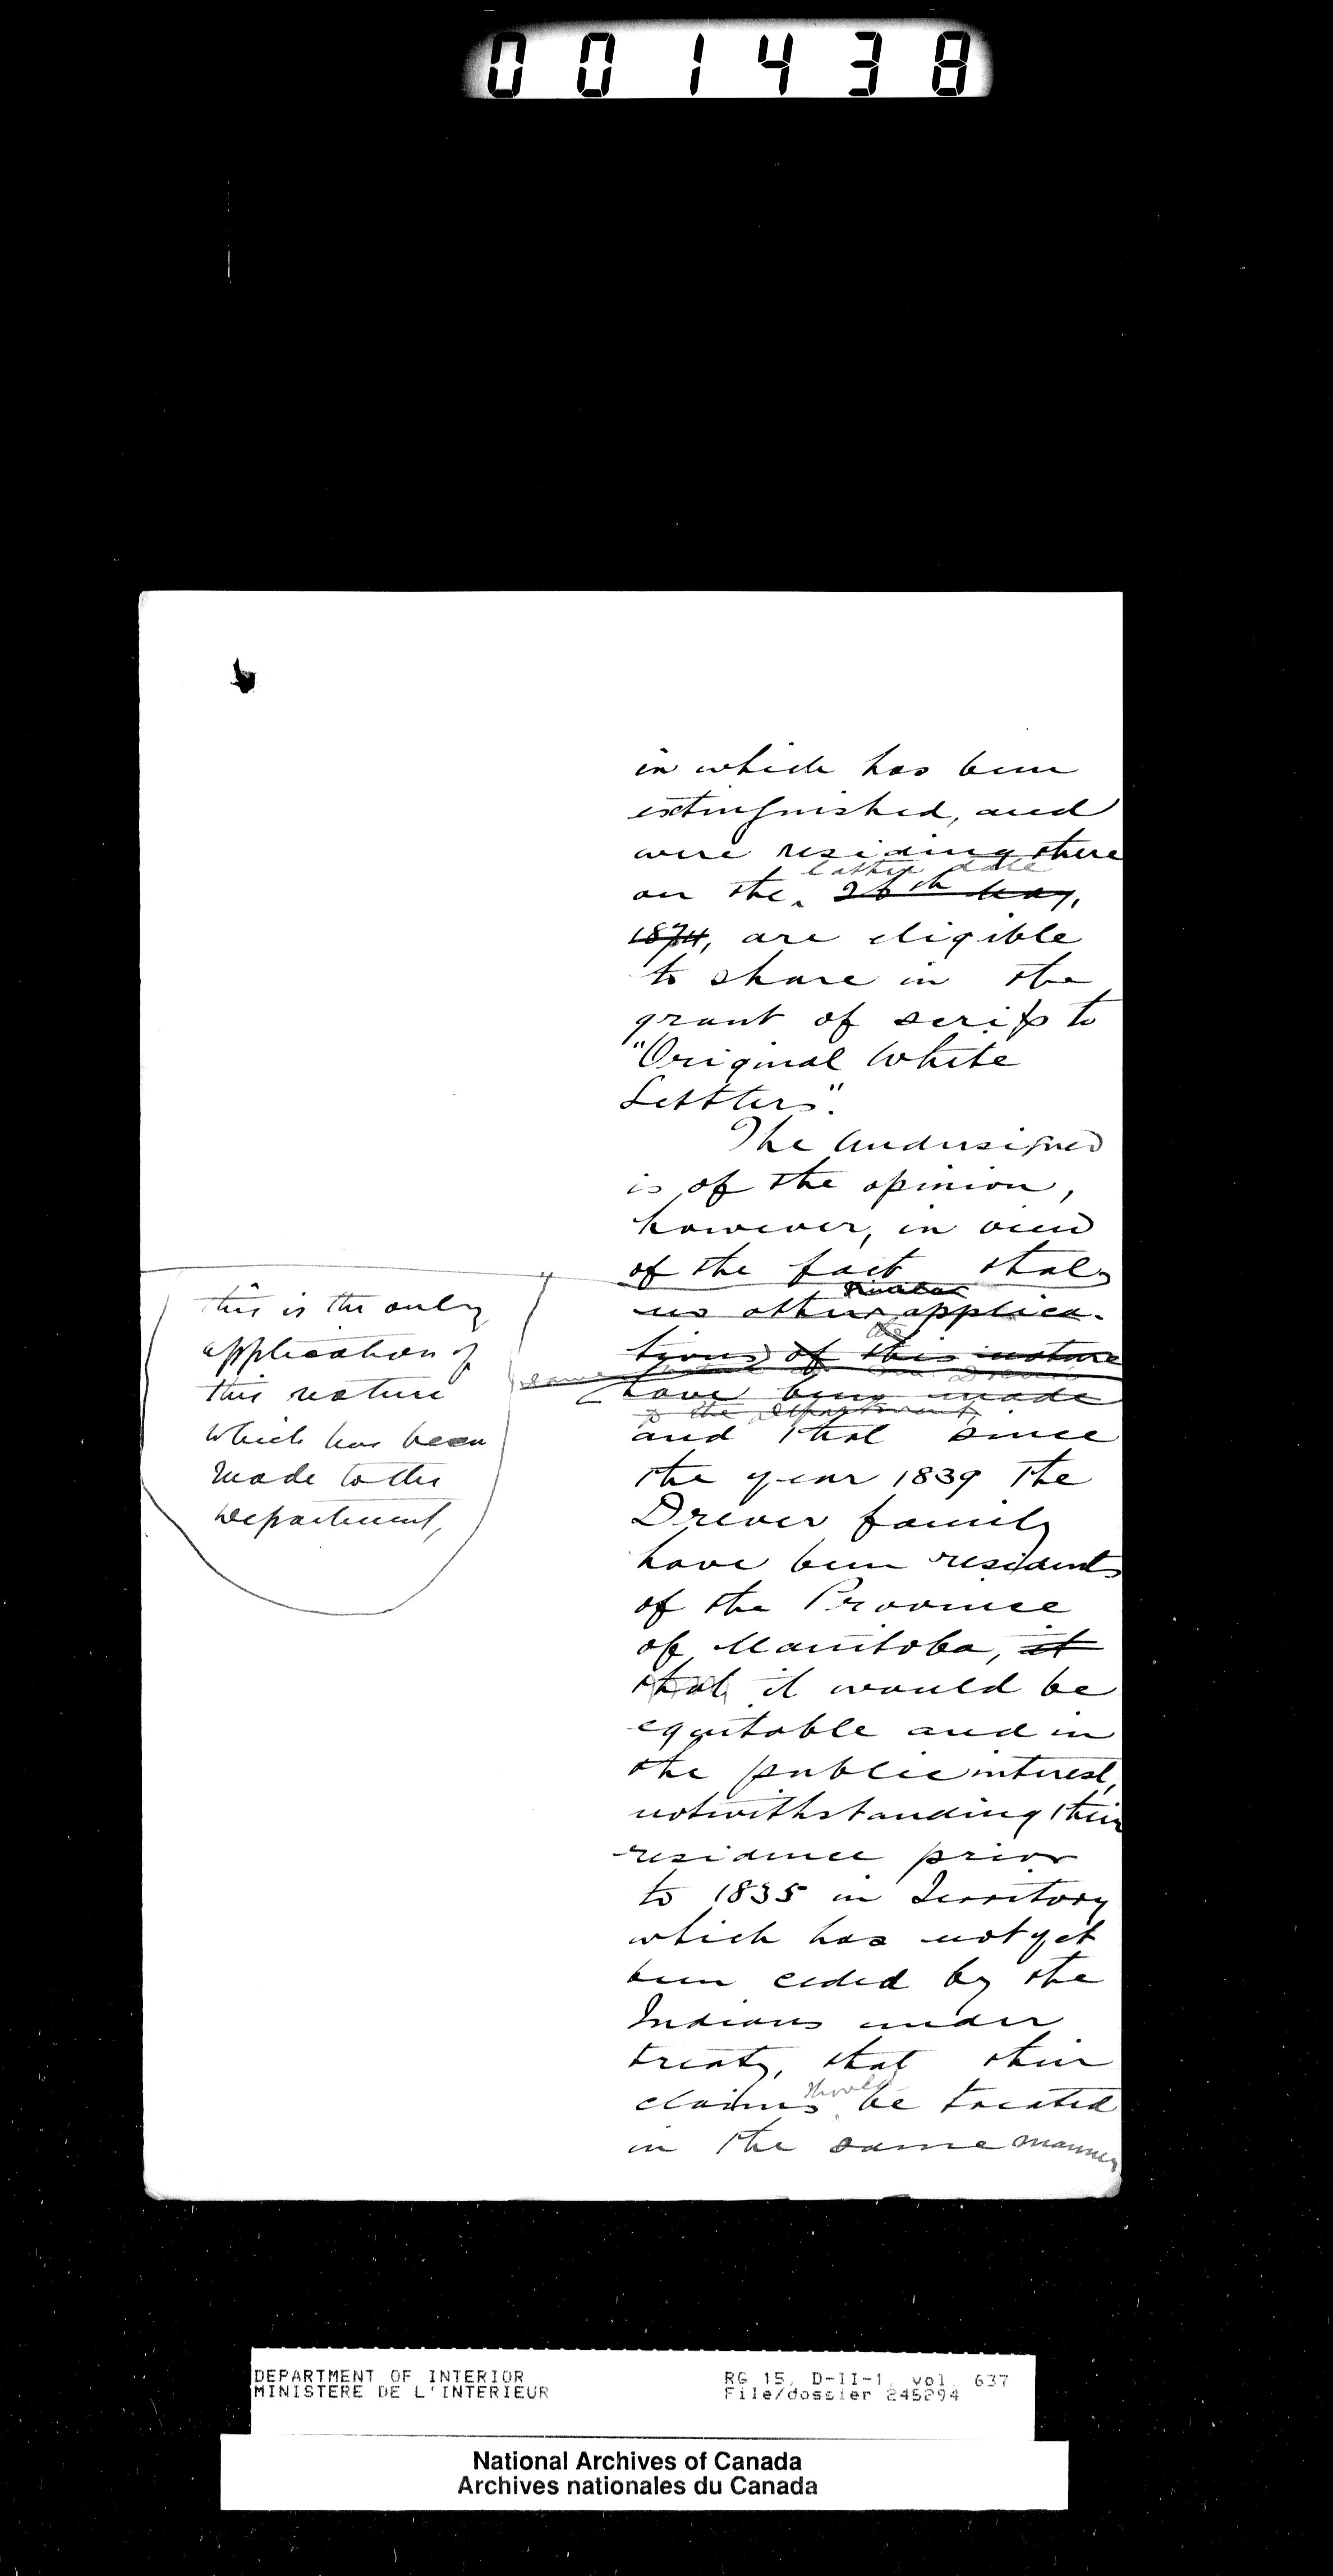 001438
in which has been
extinguished, and
were residing there
latter date
on the 26th May,
1874, are eligible
to share in the
grant of scrip to
"Original White
Settlers".
The undersigned
is of the opinion,
however, in view
of the fact that
this is the only
application of
this nature
which has been
made to the
Department,
similar
no other applica-
tions of this nature
same
have been made
to the Department,
and that since
the year 1839 the
Drever family
have been residents
of the Province
of Manitoba, it
that it would be
equitable and in
the public interest,
notwithstanding their
residence prior
to 1835 in Territory
which has not yet
been ceded by the
Indians under
treaty, that their
should
claims be treated
in the same manner
DEPARTMENT OF INTERIOR
MINISTERE DE L'INTERIEUR
RG 15, D-II-1, vol. 637
File/dossier 245294
National Archives of Canada
Archives nationales du Canada